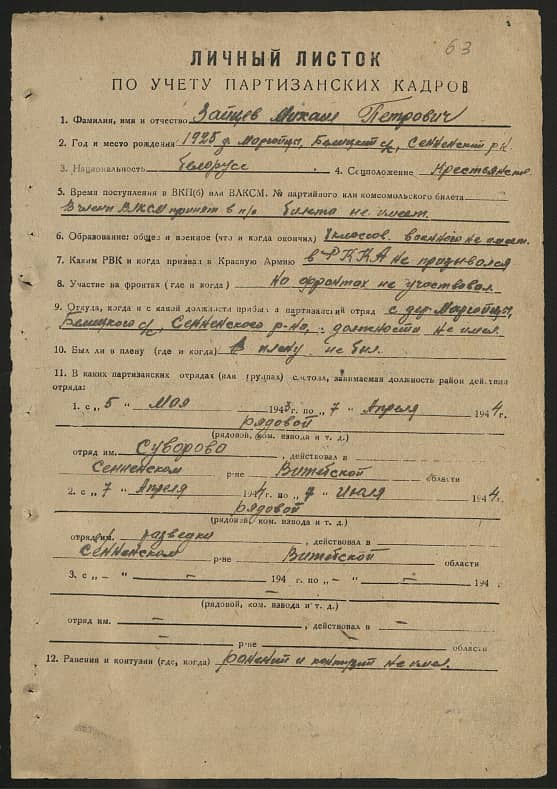 63
ЛИЧНЫЙ ЛИСТОК
ПО УЧЕТУ ПАРТИЗАНСКИХ КАДРОВ
1. Фамилия, имя и отчество Зайцев Михаил Петрович
2. Год и место рождения 1925 д. Маргойцы, Белицкий с/с, Сенненский р-н.
3. Национальность белорусс. 4. Соцположение Крестьянство
5. Время поступления в ВКП(б) или ВЛКСМ. № партийного или комсомольского билета
ВЛКСМ принят в п/о билета не имеет.
6. Образование: общее и военное (что и когда окончил) классов. военного не имеет.
7. Каким РВК и когда призван в Красную Армию в РККА не призывался
8. Участие на фронтах (где и когда) на фронтах не участвовал.
9. Откуда, когда и с какой должности прибыл в партизанский отряд с дер. Маргойцы,
Белицкого с/с, Сенненского р-на, должности не имел.
10. Был ли в плену (где и когда) в плену не был.
11. В каких партизанских отрядах (или группах) состоял, занимаемая должность район действия
отряда:
1. с „ 5 " Мая 1943 г. по „ 7 " Апреля 1944 г.
рядовой
(рядовой, ком. взвода и т. д.)
отряд им. Суворова, действовал в
Сенненском р-не Витебской области
2. с „ 7 " Апреля 1944 г. по „ 7 " Июля 1944 г.
рядовой
(рядовой, ком. взвода и т. д.)
отряд им. разведки, действовал в
Сенненском р-не Витебской области
3. с „ – " – 194 г. по „ – " – 194
(рядовой, ком. взвода и т. д.)
отряд им. –, действовал в –
– р-не – области
12. Ранения и контузии (где, когда) ранений и контузий не имел.